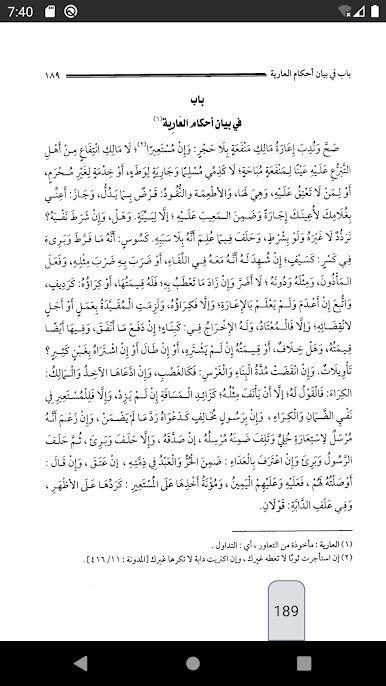 7:40
باب في بيان أحكام العارية ١٨٩
باب
في بيان أحكام العَارِية(١)
صَحَّ وَنُدِبَ إِعَارَةُ مَالِكِ مَنْفَعَةٍ بِلَا حَجْرٍ: وَإِنْ مُسْتَعِيرًا(٢)؛ لَا مَالِكِ انْتِفَاعٍ مِنْ أَهْلِ
التَّبَرُّعِ عَلَيْهِ عَيْنًا لِمَنْفَعَةٍ مُبَاحَةٍ؛ لَا كَذِمِّي مُسْلِمًا وَجَارِيَةٍ لِوَطْءٍ، أَوْ خِدْمَةٍ لِغَيْرِ مُحْرَمٍ،
أَوْ لِمَنْ لَا تَعْتِقُ عَلَيْهِ، وَهِيَ لَهَا، وَالْأَطْعِمَةُ وَالنُّقُودُ: قَرْضٌ بِمَا يَدُلُّ، وَجَازَ: أَعِنِّي
بِغُلَامِكَ لِأُعِينَكَ إِجَارَةً وَضَمِنَ الْمَغِيبَ عَلَيْهِ؛ إِلَّا لِبَيِّنَةٍ. وَهَلْ، وَإِنْ شَرَطَ نَفْيَهُ؟
تَرَدُّدٌ لَا غَيْرَهُ وَلَوْ بِشَرْطٍ، وَحَلَفَ فِيمَا عُلِمَ أَنَّهُ بِلَا سَبَبِهِ. كَسُوسٍ: أَنَّهُ مَا فَرَّطَ وَبَرِىءَ
فِي كَسْرِ: كَسَيْفٍ؛ إِنْ شُهِدَ لَهُ أَنَّهُ مَعَهُ فِي اللِّقَاءِ، أَوْ ضَرَبَ بِهِ ضَرْبَ مِثْلِهِ، وَفَعَلَ
الْمَأْذُونَ، وَمِثْلَهُ وَدُونَهُ؛ لَا أَضَرَّ وَإِنْ زَادَ مَا تَعْطَبُ بِهِ؛ فَلَهُ قِيمَتُهَا، أَوْ كِرَاؤُهُ: كَرَدِيفٍ،
وَاتُّبِعَ إِنْ أَعْدَمَ وَلَمْ يَعْلَمْ بِالْإِعَارَةِ؛ وَإِلَّا فَكِرَاؤُهُ، وَلَزِمَتِ الْمُقَيَّدَةُ بِعَمَلٍ أَوْ أَجَلٍ
لِانْقِضَائِهِ؛ وَإِلَّا فَالْمُعْتَادُ، وَلَهُ الْإِخْرَاجُ فِي: كَبِنَاءٍ؛ إِنْ دَفَعَ مَا أَنْفَقَ، وَفِيهَا أَيْضًا
قِيمَتُهُ، وَهَلْ خِلَافٌ، أَوْ قِيمَتُهُ إِنْ لَمْ يَشْتَرِهِ، أَوْ إِنْ طَالَ أَوْ إِنْ اشْتَرَاهُ بِغَبْنٍ كَثِيرٍ؟
تَأْوِيلَاتٌ. وَإِنْ انْقَضَتْ مُدَّةُ الْبِنَاءِ وَالْغَرْسِ: فَكَالْغَصْبِ، وَإِنْ ادَّعَاهَا الْآخِذُ وَالْمَالِكُ:
الْكِرَاءَ: فَالْقَوْلُ لَهُ؛ إِلَّا أَنْ يَأْنَفَ مِثْلُهُ؛ كَزَائِدِ الْمَسَافَةِ إِنْ لَمْ يَزِدْ، وَإِلَّا فَلِلْمُسْتَعِيرِ فِي
نَفْيِ الضَّمَانِ وَالْكِرَاءِ، وَإِنْ بِرَسُولٍ مُخَالِفٍ كَدَعْوَاهُ رَدَّ مَا لَمْ يَضْمَنْ، وَإِنْ زَعَمَ أَنَّهُ
مُرْسَلٌ لِاسْتِعَارَةِ حُلِيٍّ وَتَلِفَ ضَمِنَهُ مُرْسِلُهُ، إِنْ صَدَّقَهُ، وَإِلَّا حَلَفَ وَبَرِئَ، ثُمَّ حَلَفَ
الرَّسُولُ وَبَرِئَ وَإِنْ اعْتَرَفَ بِالْعَدَاءِ: ضَمِنَ الْحُرُّ وَالْعَبْدُ فِي ذِمَّتِهِ، إِنْ عَتَقَ، وَإِنْ قَالَ:
أَوْصَلْتُهُ لَهُمْ، فَعَلَيْهِ وَعَلَيْهِمُ الْيَمِينُ، وَمُؤْنَةُ أَخْذِهَا عَلَى الْمُسْتَعِيرِ: كَرَدِّهَا عَلَى الْأَظْهَرِ،
وَفِي عَلَفِ الدَّابَّةِ: قَوْلَانِ.
(١) العارية: مأخوذة من التعاور، أي: التداول.
(٢) إن استأجرت ثوبًا لا تعطه غيرك، وإن اكتريت دابة لا تكرها غيرك [المدونة: ٤١٦/١١].
189